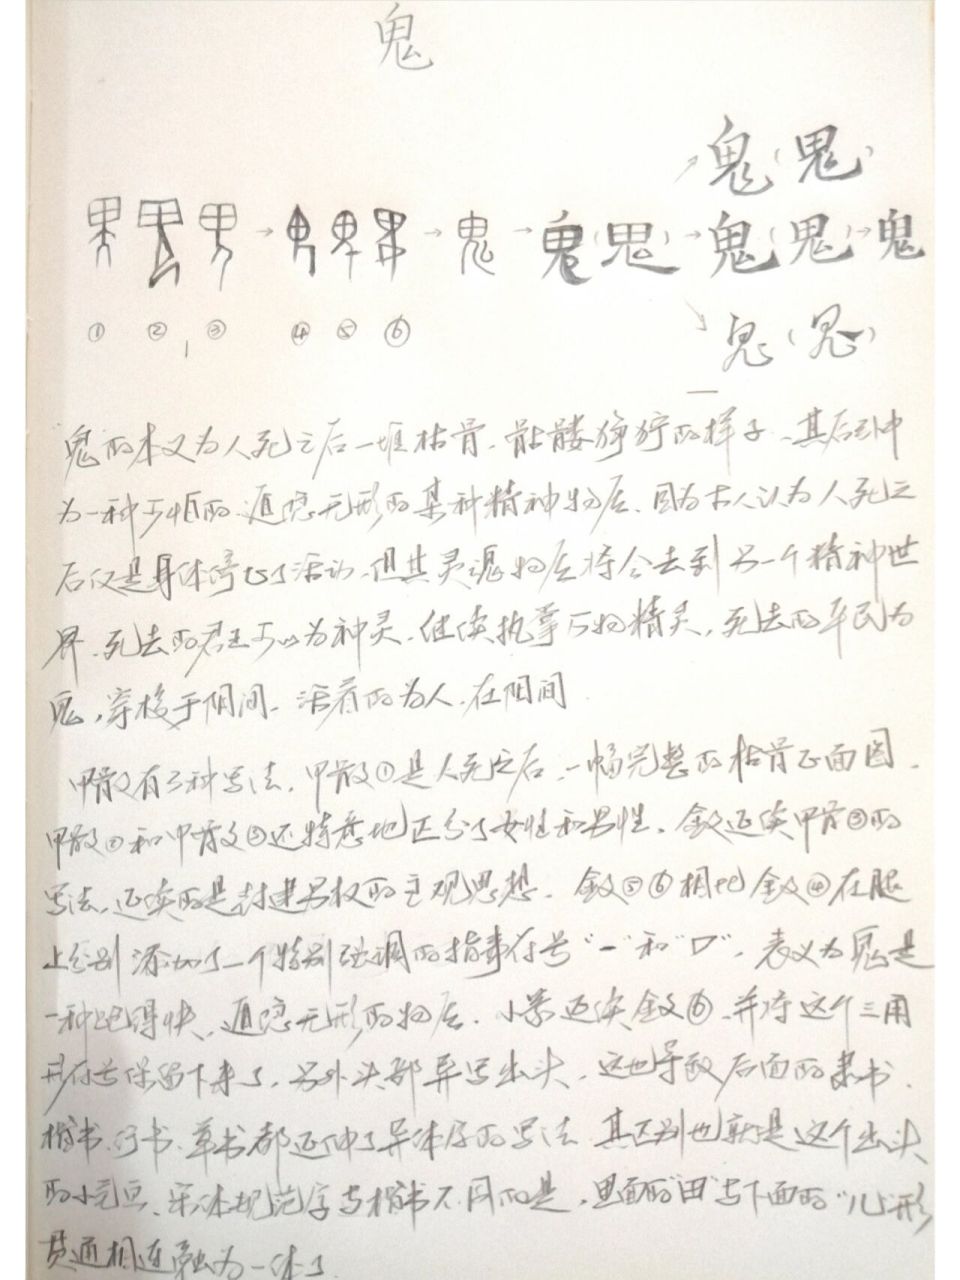 鬼
鬼（鬼）
→ → 鬼 → 鬼（鬼）→ 鬼（鬼）→ 鬼
① ② ③ ④ ⑤ ⑥
鬼（鬼）
"鬼"的本义为人死之后一堆枯骨、骷髅狰狞的样子、其后引申
为一种可怕的、遁隐无形的某种精神物质、因为古人认为人死之
后仅是身体停止了活动、但其灵魂物质将会去到另一个精神世
界、死去的君王可以为神灵、继续执掌万物精灵，死去的平民为
鬼，穿梭于阴间、活着的为人、在阳间
甲骨文有三种写法、甲骨文①是人死之后、一幅完整的枯骨正面图、
甲骨文②和甲骨文③还特意地区分了女性和男性、金文延续甲骨③的
写法、延续的是封建男权的主观思想、金文⑤⑥相比金文④在腿
上分别添加了一个特别强调的指事符号"一"和"口"，表义为鬼是
一种跑得快、遁隐无形的物质、小篆延续金文⑥、并将这个三角
形符号保留下来了、另外头部异写出头、这也导致后面的隶书、
楷书、行书、草书都延伸了异体字的写法、其区别也就是这个出头
的小亮点、宋体规范字与楷书不同的是，里面的"田"与下面的"儿"形
贯通相连融为一体了